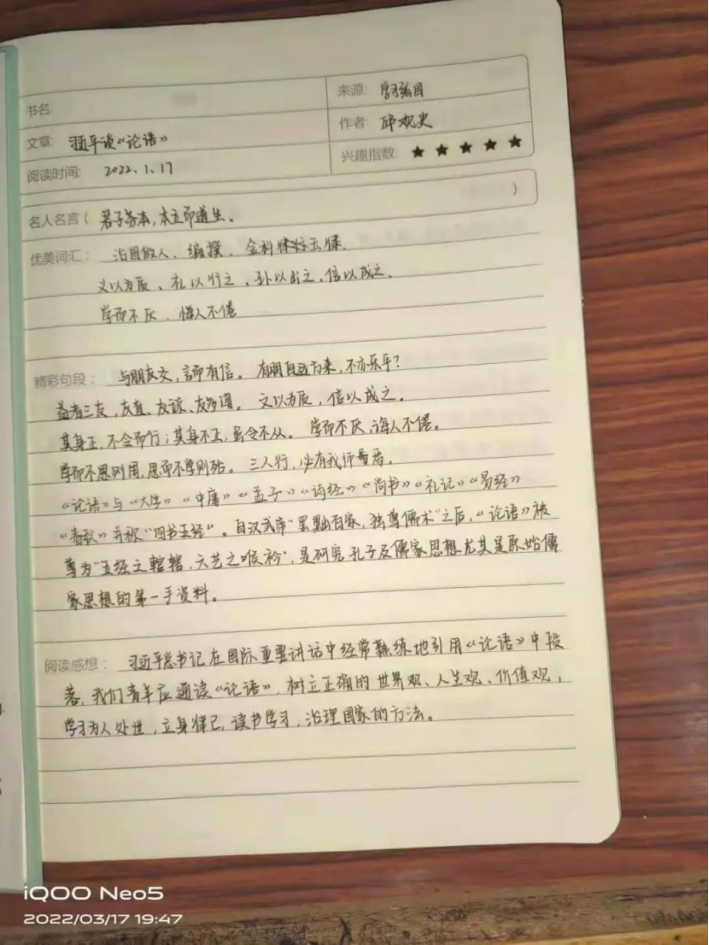 书名:
来源: 学习强国
文章: 习近平谈《论语》
作者: 邱观史
阅读时间: 2022.1.17
兴趣指数: ★ ★ ★ ★ ★
名人名言( 君子务本,本立而道生。 )
优美词汇: 治国做人、编撰、金科玉律
义以为质、礼以行之、孙以出之、信以成之、
学而不厌、悔人不倦
精彩句段: 与朋友交,言而有信。有朋自远方来,不亦乐乎?
益者三友,友直、友谅、友多闻。 义以为质,信以成之。
其身正,不令而行;其身不正,虽令不从。 学而不厌,诲人不倦。
学而不思则罔,思而不学则殆。 三人行,必有我师焉。
《论语》与《大学》《中庸》《孟子》《诗经》《尚书》《礼记》《易经》
《春秋》并称“四书五经”。自汉武帝“罢黜百家,独尊儒术”之后,《论语》被
尊为“五经之輨辖,六艺之喉衿”,是研究孔子及儒家思想尤其是原始儒
家思想的第一手资料。
阅读感想: 习近平总书记在国际重要讲话中经常熟练地引用《论语》中段
落,我们青年应通读《论语》,树立正确的世界观、人生观、价值观,
学习为人处世,立身律己,读书学习,治理国家的方法。
iQOO Neo5
2022/03/17 19:47